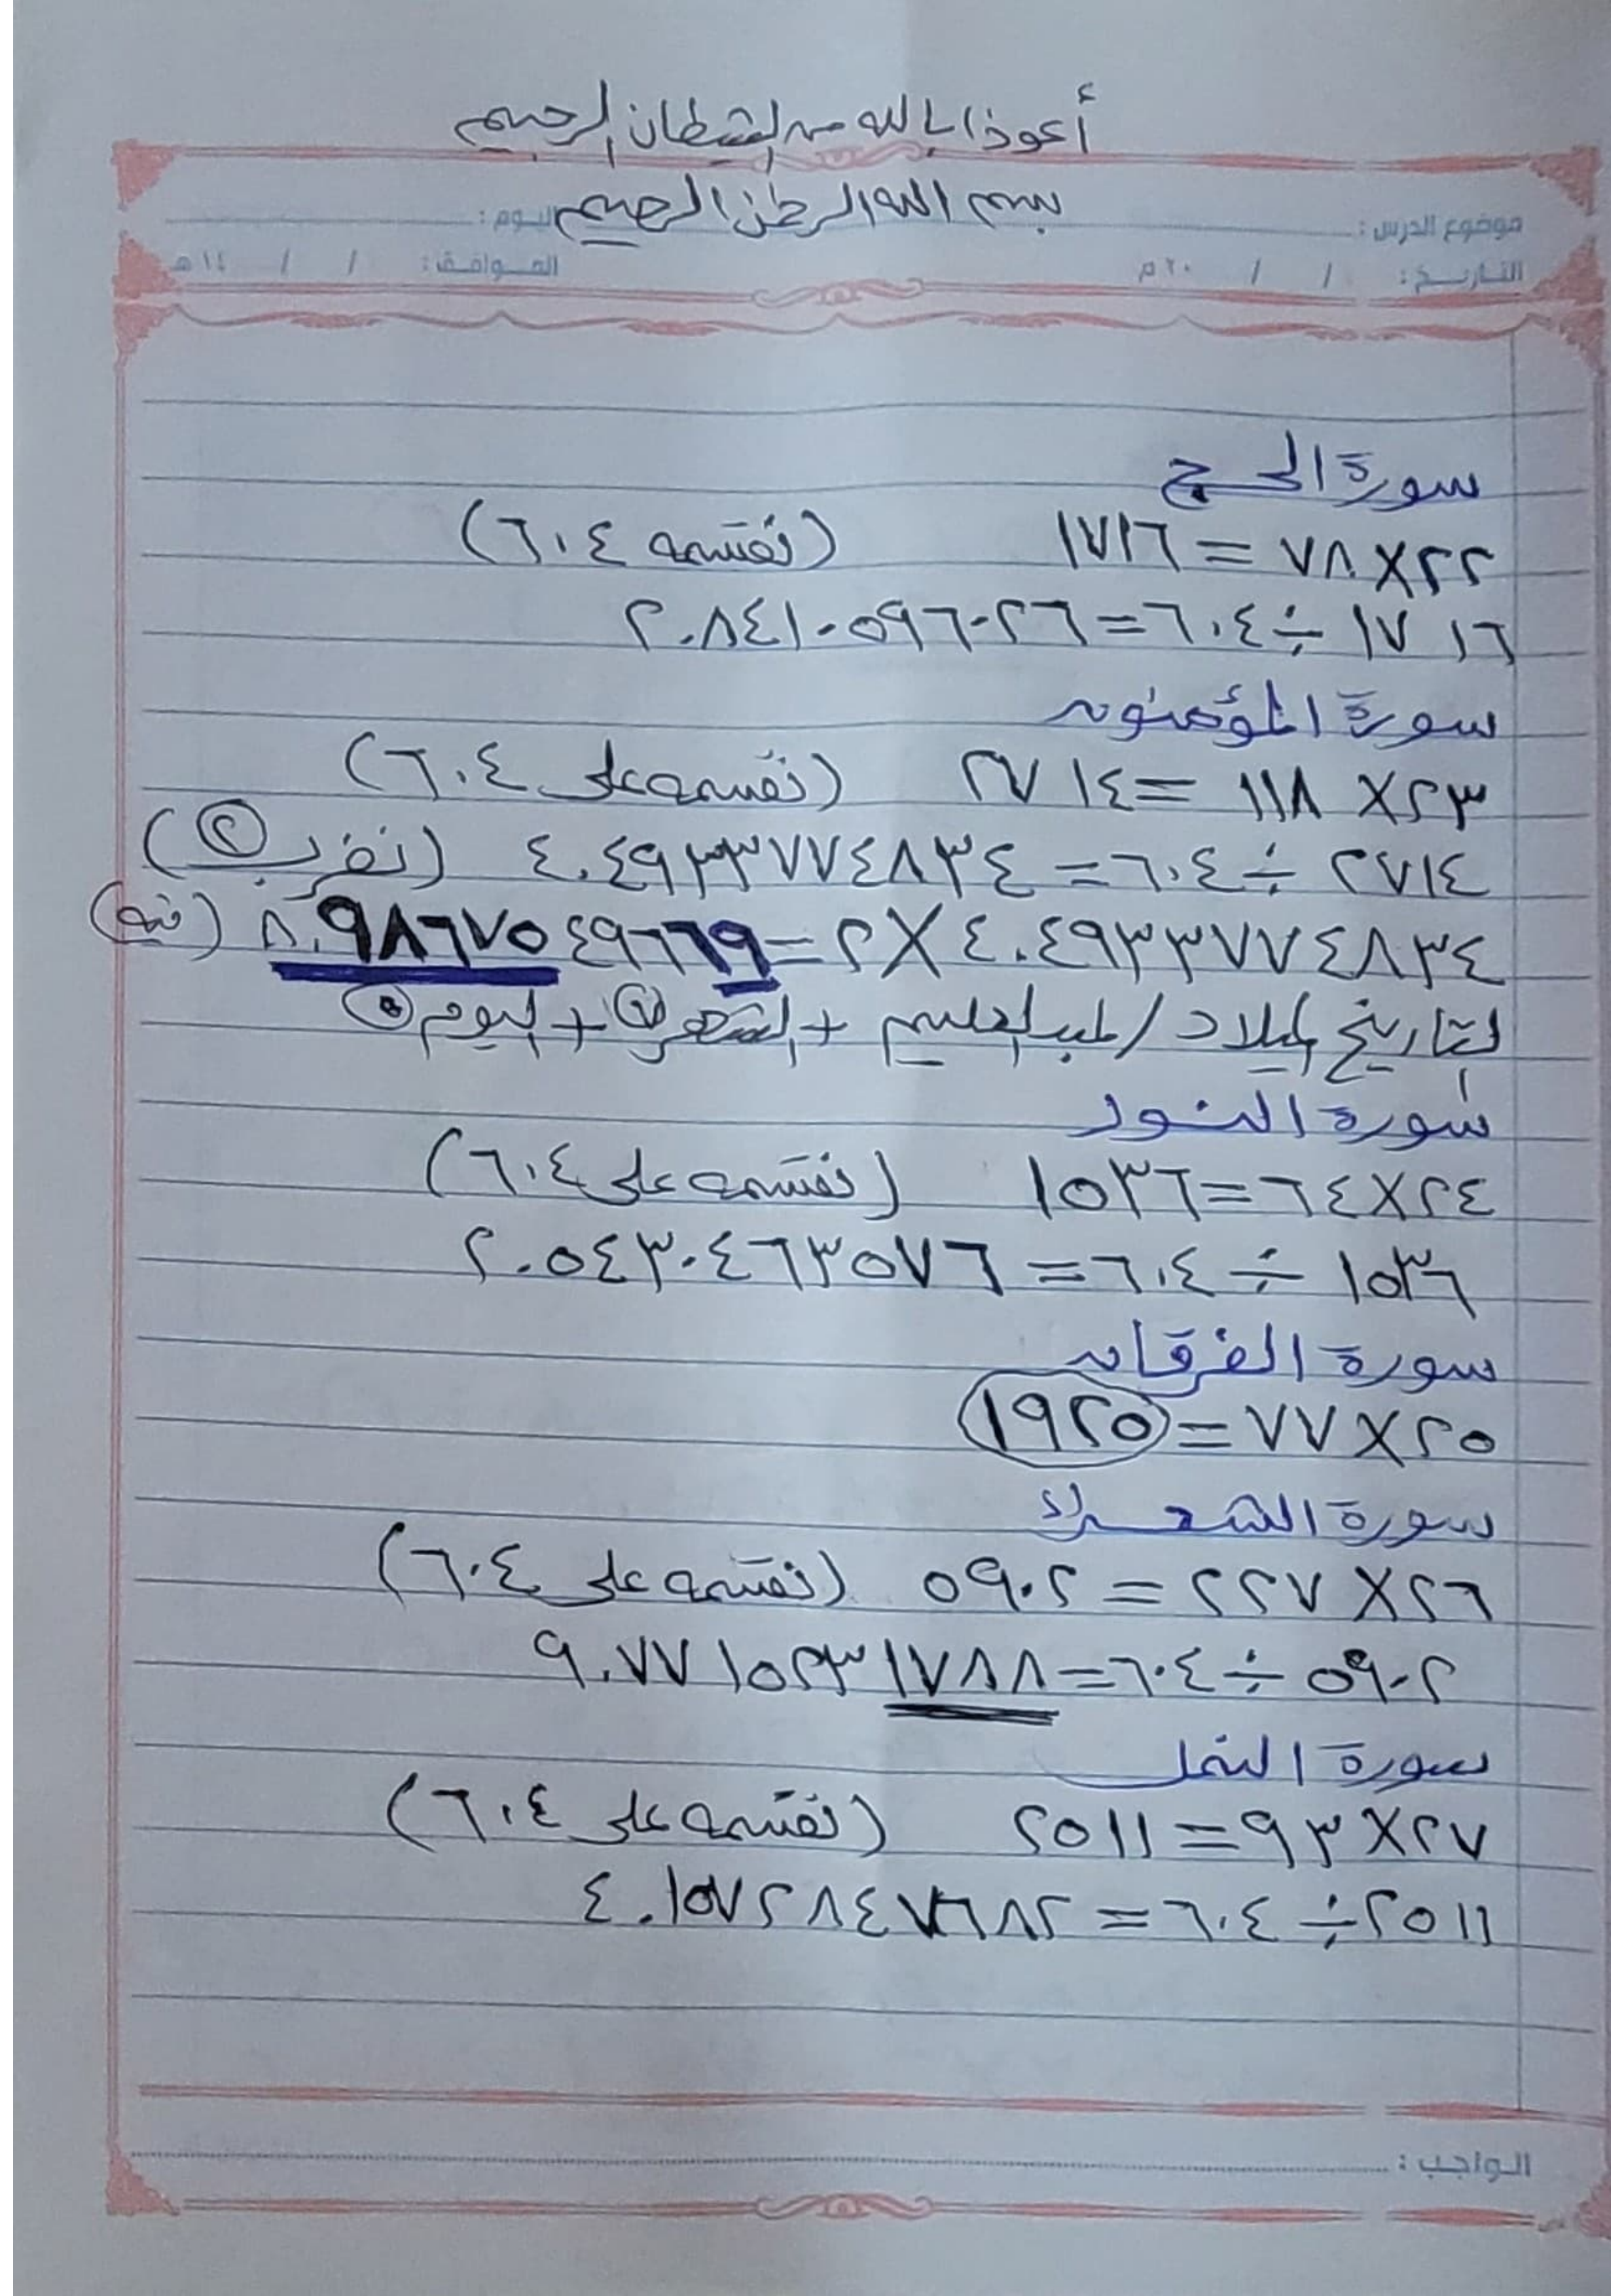 أعوذ بالله من الشيطان الرجيم
بسم الله الرحمن الرحيم
موضوع الدرس : اليوم :
التاريخ : / / ٢٠ م الموافق : / / ١٤ هـ
سورة الحج
٢٢ × ٧٨ = ١٧١٦ (نقسمه ٦٠٤)
١٧١٦ ÷ ٦٠٤ = ٢.٨٤١٠٥٩٦٠٢٦
سورة المؤمنون
٢٣ × ١١٨ = ٢٧١٤ (نقسمه على ٦٠٤)
٢٧١٤ ÷ ٦٠٤ = ٤.٤٩٣٣٧٧٤٨٣٤ (نضرب ٢)
٤.٤٩٣٣٧٧٤٨٣٤ × ٢ = ٨.٩٨٦٧٥٤٩٦٦٩ (فيه)
التاريخ الميلاد / لعبد العليم + الشهر ٦ + اليوم ٥
سورة النور
٢٤ × ٦٤ = ١٥٣٦ (نقسمه على ٦٠٤)
١٥٣٦ ÷ ٦٠٤ = ٢.٥٤٣٠٤٦٣٥٧٦
سورة الفرقان
٢٥ × ٧٧ = ١٩٢٥
سورة الشعراء
٢٦ × ٢٢٧ = ٥٩٠٢ (نقسمه على ٦٠٤)
٥٩٠٢ ÷ ٦٠٤ = ٩.٧٧١٥٢٣١٧٨٨
سورة النمل
٢٧ × ٩٣ = ٢٥١١ (نقسمه على ٦٠٤)
٢٥١١ ÷ ٦٠٤ = ٤.١٥٧٢٨٤٧٦٨٢
الواجب :